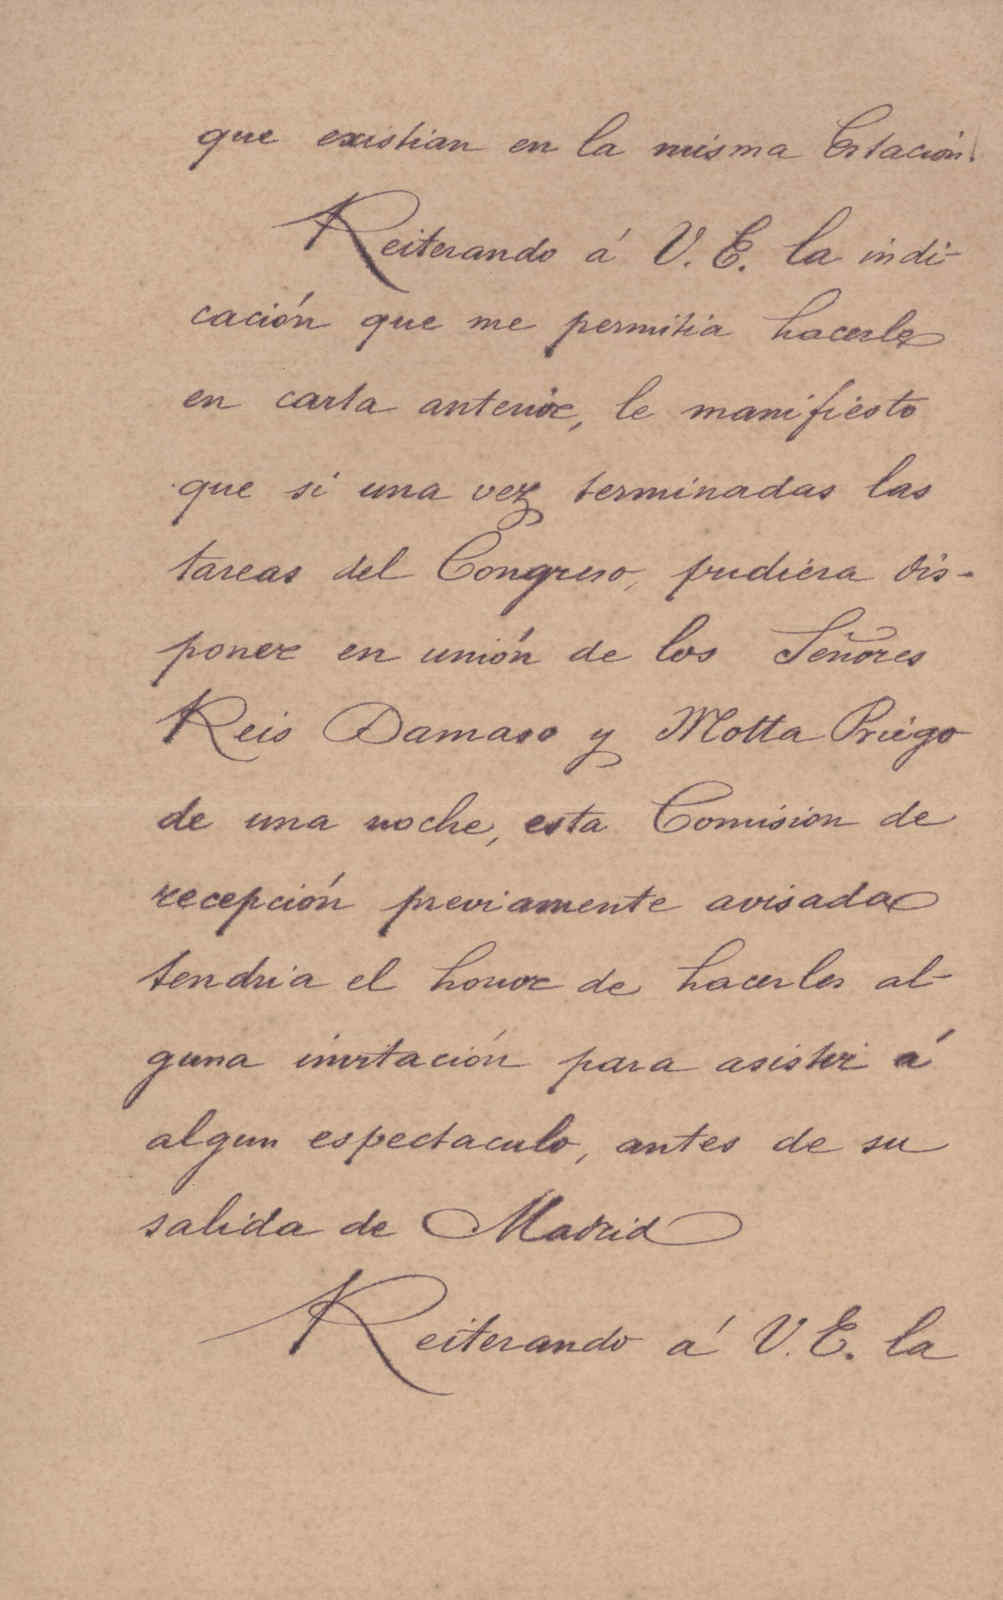 que existian en la misma Estación.
Reiterando á V. E. la indi-
cación que me permitia hacerle
en carta anterior, le manifiesto
que si una vez terminadas las
tareas del Congreso, pudiera dis-
poner en unión de los Señores
Reis Damaso y Motta Priego
de una noche, esta Comision de
recepción previamente avisada
tendria el honor de hacerles al-
guna invitación para asistir á
algun espectaculo, antes de su
salida de Madrid
Reiterando á V. E. la